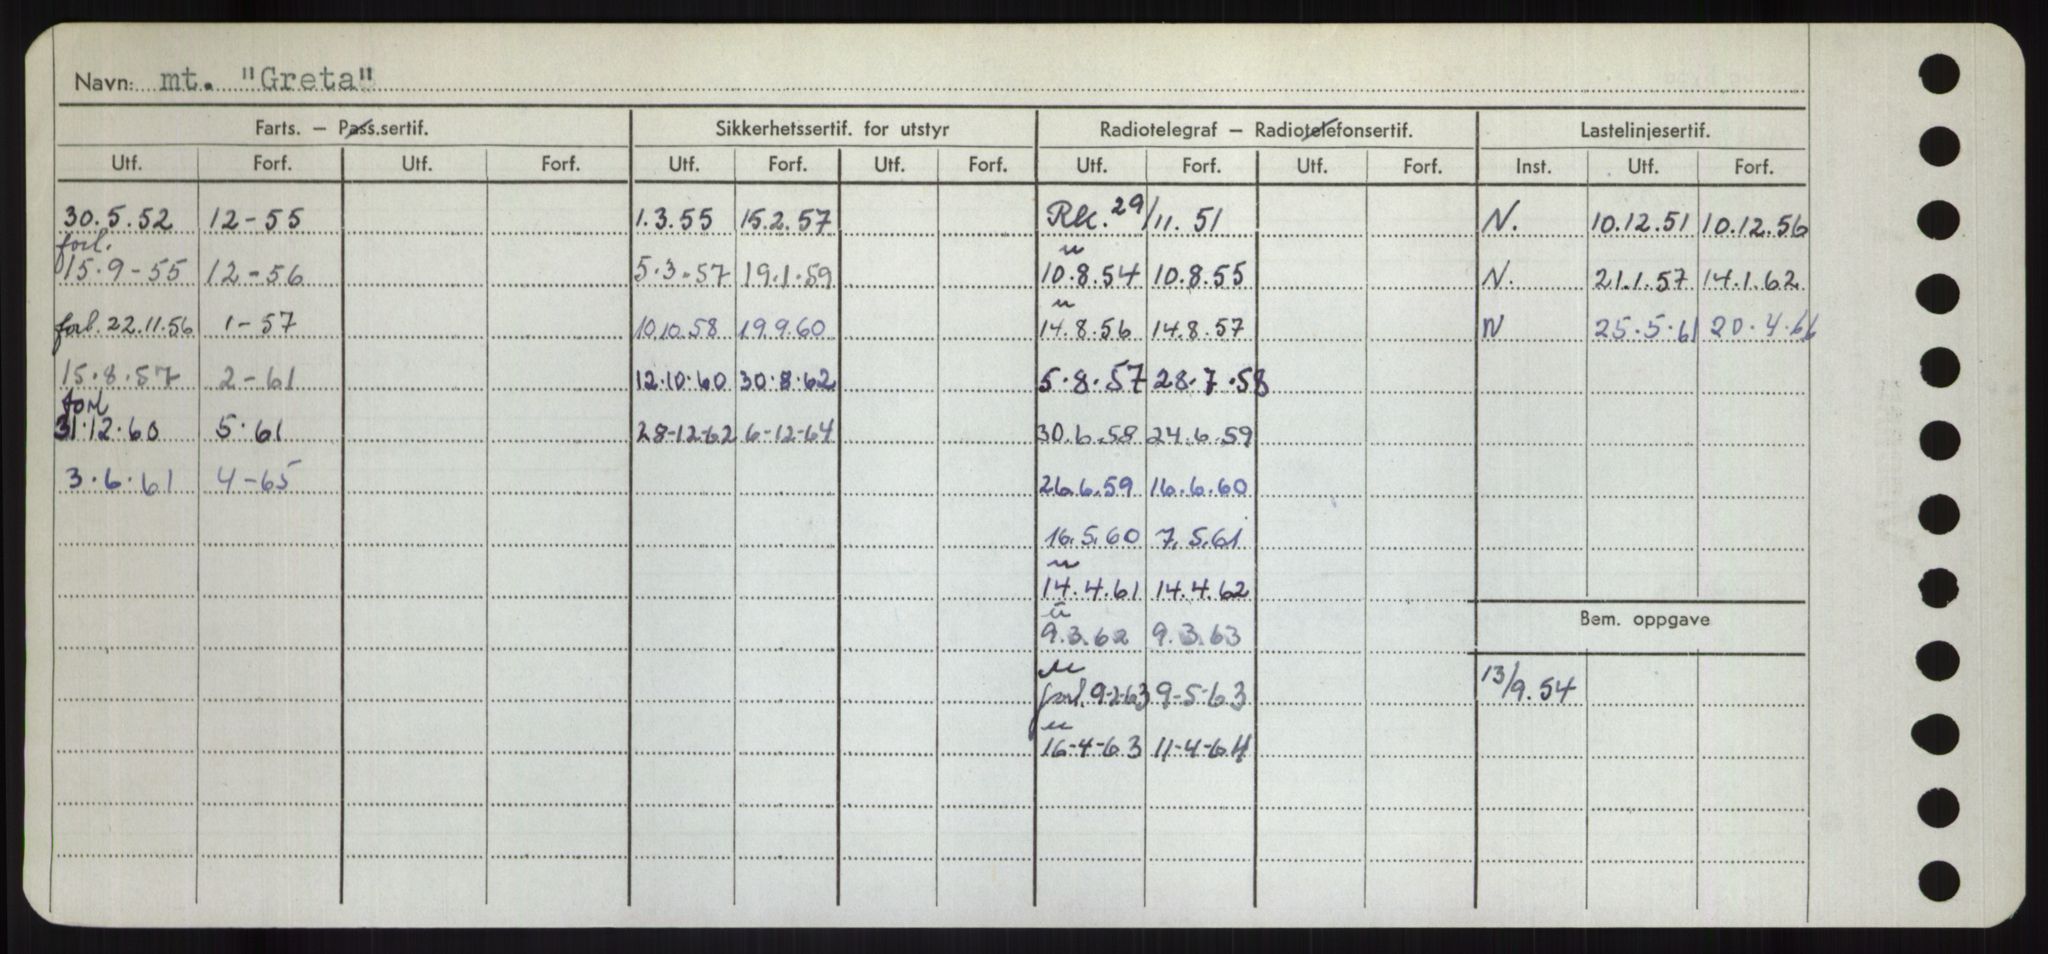 Navn: mt. "Greta"
Farts. – Pass.sertif. Sikkerhetssertif. for utstyr Radiotelegraf – Radiotelefonsertif. Lastelinjesertif.
Utf. Forf. Utf. Forf. Utf. Forf. Utf. Forf. Utf. Forf. Utf. Forf. Inst. Utf. Forf.
30.5.52 12-55 1.3.55 15.2.57 Rk. 29/11.51 N. 10.12.51 10.12.56
forl. u
15.9-55 12-56 5.3.57 19.1.59 10.8.54 10.8.55 N. 21.1.57 14.1.62
u
forl. 22.11.56 1-57 10.10.58 19.9.60 14.8.56 14.8.57 N 25.5.61 20.4.66
15.8.57 2-61 12.10.60 30.8.62 5.8.57 28.7.58
forl
31.12.60 5.61 28-12-62 6-12-64 30.6.58 24.6.59
3.6.61 4-65 26.6.59 16.6.60
16.5.60 7.5.61
u
14.4.61 14.4.62
u Bem. oppgave
9.3.62 9.3.63
u
forl. 9-2-63 9-5-63 13/9.54
u
16-4-63 11-4-64